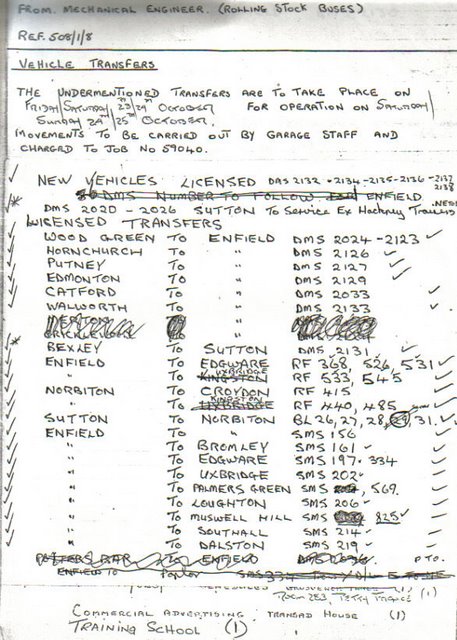 FROM MECHANICAL ENGINEER. (ROLLING STOCK BUSES)
REF. 508/1/8
VEHICLE TRANSFERS
THE UNDERMENTIONED TRANSFERS ARE TO TAKE PLACE ON
FRIDAY/SATURDAY 23/24TH OCTOBER FOR OPERATION ON SATURDAY/
SUNDAY 24TH/25TH OCTOBER.
MOVEMENTS TO BE CARRIED OUT BY GARAGE STAFF AND
CHARGED TO JOB NO 59040.
NEW VEHICLES LICENSED DMS 2132 -2134-2135-2136-2137
2138
DMS NUMBER TO FOLLOW ENFIELD
DMS 2020 - 2026 SUTTON TO Service Ex Hackney
LICENSED TRANSFERS
WOOD GREEN TO ENFIELD DMS 2024-2123
HORNCHURCH TO " DMS 2126
PUTNEY TO " DMS 2127
EDMONTON TO " DMS 2129
CATFORD TO " DMS 2033
WALWORTH TO " DMS 2133
BEXLEY TO SUTTON DMS 2131
ENFIELD TO EDGWARE RF 368, 526, 531
UXBRIDGE
" TO KINGSTON RF 533, 545
NORBITON TO CROYDON RF 415
KINGSTON
" TO UXBRIDGE RF 440, 485
SUTTON TO NORBITON BL 26, 27, 28, 29, 31.
ENFIELD TO " SMS 156
" TO BROMLEY SMS 161
" TO EDGWARE SMS 197. 334
" TO UXBRIDGE SMS 202
" TO PALMERS GREEN SMS 569
" TO LOUGHTON SMS 206
" TO MUSWELL HILL SMS 825
" TO SOUTHALL SMS 214
" TO DALSTON SMS 219
POTTERS BAR TO ENFIELD PTO.
ENFIELD TO
(1)
(1)
COMMERCIAL ADVERTISING TRANSAD HOUSE (1)
TRAINING SCHOOL (1)